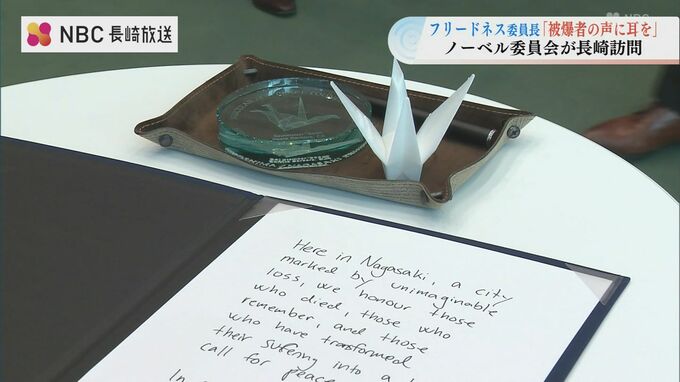 NBC 長崎放送
NBC
フリードネス委員長「被爆者の声に耳を」
ノーベル委員会が長崎訪問
Here in Nagasaki, a city
marked by unimaginable
loss, we honour those
who died, those who
remember, and those
who have transformed
their suffering into a
call for peace
In